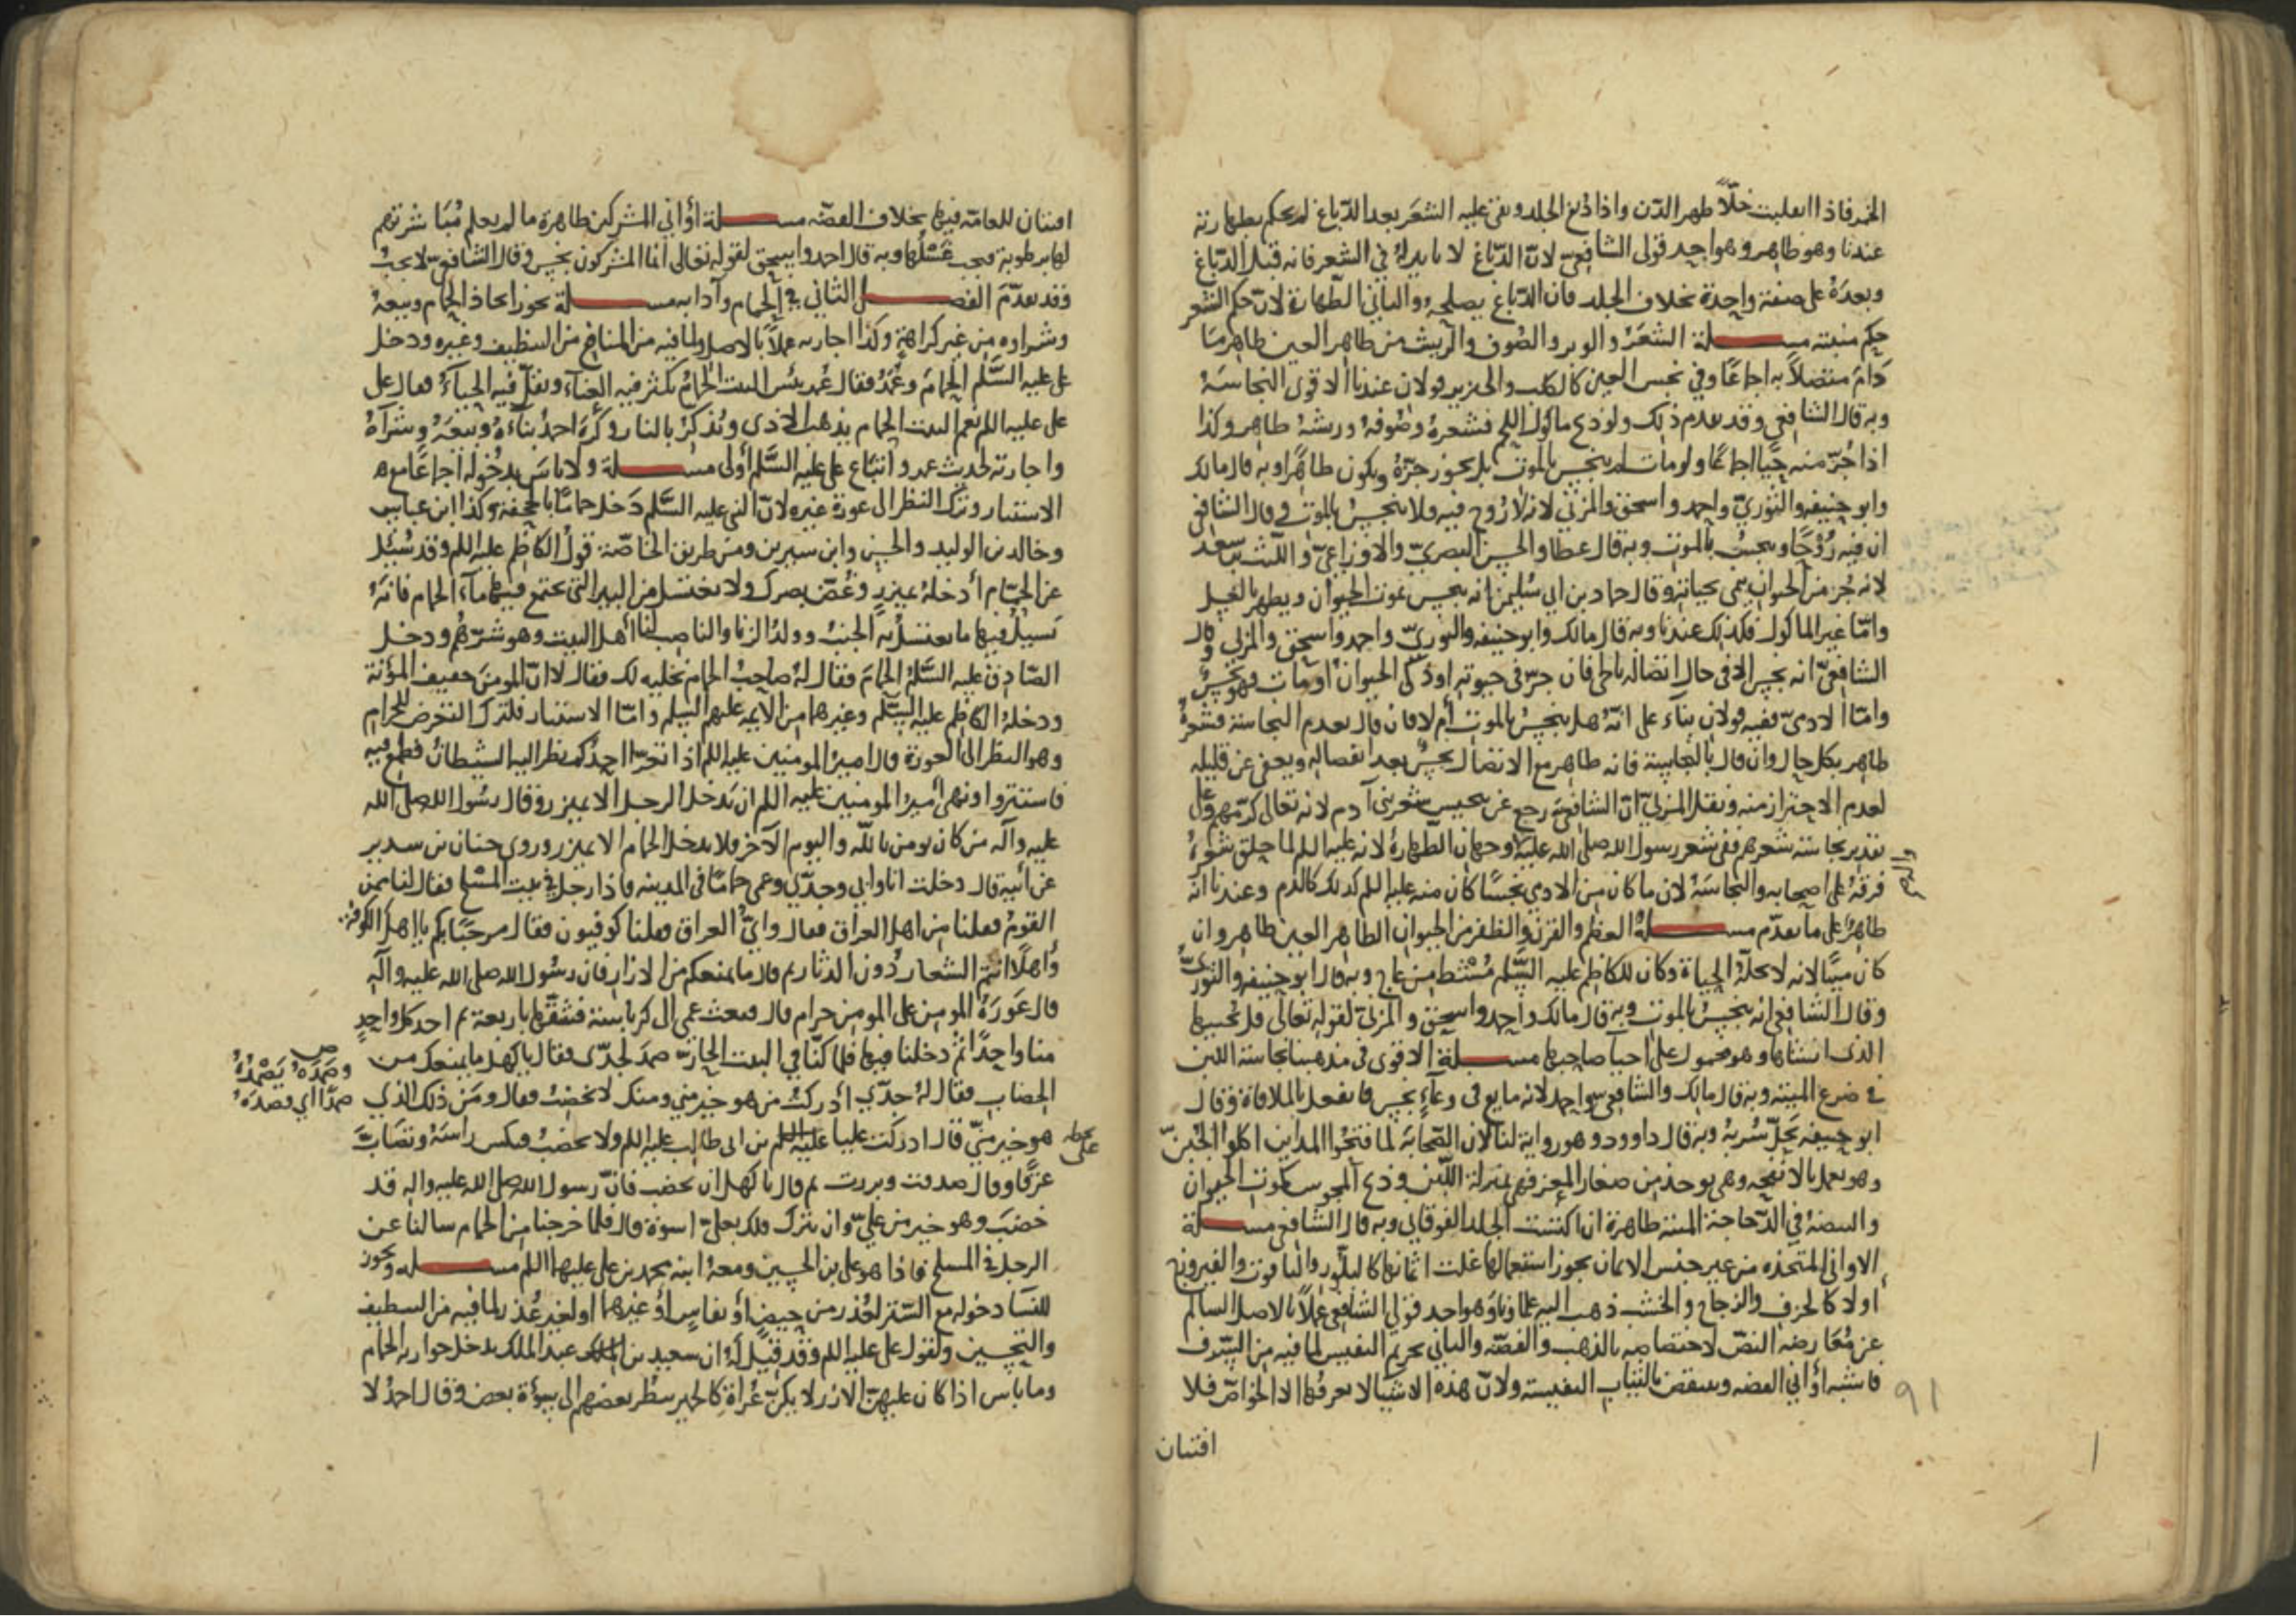 الخمر فاذا انقلبت خلّاً طهر الدّن واذا دُبغ الجلد وبقى عليه الشعَر بعد الدّباغ لم يحكم بطهارته
عندنا وهو طاهر وهو احد قولى الشافعى لانّ الدّباغ لا تاثير له في الشعر فانه قبل الدّباغ
وبعدَهُ على صفة واحدة بخلاف الجلد فان الدّباغ يصلحه والثاني الطّهارة لانّ حكم الشعر
حكم منبته مسـلة الشعَرُ والوبر والصُّوف والريش من طاهر العين طاهر مَا
دَامَ متّصلاً به اجماعًا وفي نجس العين كالكلب والخنزير قولان عندنا الاقوى النجاسَهُ
وبه قال الشافعي وقد تقدم ذلك ولو ذبح ماكول اللحم فشعرهُ وصُوفهُ وريشهُ طاهر وكذا
اذا جُزّ منه حيًّا اجماعًا ولو مات لم ينجس بالموت بل يجوز جزّهُ ويكون طاهرًا وبه قال مالك
وابو حنيفه والثوريّ واحمد واسحق والمزني لانه لا رُوح فيه فلا ينجسُ بالموت وقال الشافعي
ان فيه رُوحًا وينجسُ بالموت وبه قال عطا والحسن البصريّ والاوزاعيّ واللّيث بن سعد
لانه جُزء من الحيوان ينمى بحياته وقال حماد بن ابي سُليمن انه ينجس بموت الحيوان ويطهر بالغسل
وامّا غير الماكول فكذلك عندنا وبه قال مالك وابو حنيفه والثوريّ واحمد واسحق والمزني وقال
الشافعيّ انه نجس الا في حال اتصاله باطن فان جزّ في حيوته او ذكى الحيوان او مات فهو نجسٌ
وامّا الادمىّ ففيه قولان بناءً على انّهُ هل ينجسُ بالموت ام لا فان قال بعدم النجاسة فشعرهُ
طاهر بكل حال وان قال بالنجاسة فانه طاهر مع الاتصال نجسٌ بعد انفصاله ويعفى عن قليله
لعدم الاحتراز منه ونقل المزنيّ انّ الشافعيَ رجع عن تنجيس شعر بني آدم لانه تعالى كرّمهم وعلى
تقدير نجاسة شعرهم ففى شعر رسول الله صلى الله عليه وجهان الطّهارةُ لانه عليه السلم لما حلق شعرهُ
فرقهُ على اصحابه والنجاسَهُ لان ما كان من الادمى نجسًا كان منه عليه السلم كذلك كالدم وعندنا انهُ
طاهرٌ على ما تقدّم مسـلةُ العظم والقرن والظفر من الحيوان الطاهر العين طاهر وان
كان ميتًا لانه لا تحلّهُ الحياة وكان للكاظم عليه السَّلم مُشط من عاج وبه قال ابو حنيفه والثوريّ
وقال الشافعى انه ينجسُ بالموت وبه قال مالك واحمد واسحق والمزنيّ لقوله تعالى قل يُحييها
الذى انشاها وهو محمول على احيا صاحبها مسـلة الاقوى في مذهبنا نجاسة اللبن
في ضرع الميتة وبه قال مالك والشافعى واحمد لانه مايع في وعآءٍ نجس فانفعل بالملاقاة وقال
ابو حنيفه يحلّ شربهُ وبه قال داوود وهو رواية لنا لان الصّحابَه لما فتحُوا المداين اكلوا الجُبنَ
وهو يعمل بالانفحه وهي توخذ من صغار المعز فهى بمنزلة اللّبن وذبح المجوس كموت الحيوان
والبيضهُ في الدّجاجة الميتة طاهرة ان اكتست الجلد الفوقانى وبه قال الشافعى مسـلة
الاواني المتّخذه من غير جنس الاثمان يجوز استعمالها غلت اثمانها كالبلّور والياقوت والفيروزج
أو لا كالخزف والزجاج والخشب ذهب اليه علماؤنا وهو احد قولي الشافعى عملًا بالاصل السالم
عن مُعارضه النصّ لاختصاصه بالذهب والفضّه والثاني تحريم النفيس لما فيه من السّرف
فاشبه أواني الفضه وينتقض بالثياب النفيسة ولانّ هذه الاشيا لا يعرفُها الا الخواصّ فلا
افتتان
٩١
افتتان للعامّه فيها بخلاف الفضّه مسـلة أواني المشركين طاهرة ما لم يعلم مُباشرتهم
لها برطوبة فيجب غَسْلُها وبه قال احمد واسحق لقوله تعالى انما المشركون نجس وقال الشافعى لا يجبُ
وقد تقدّمَ الفصـل الثاني في الحمام وآدابه مسـلة يجوز اتخاذ الحمام وبيعهُ
وشراوه من غير كراهة وكذا اجارته عملًا بالاصل ولما فيه من المنافع من التنظيف وغيره ودخل
على عليه السَّلم الحمامَ وعُمَرُ فقال عُمَر بئس البيت الحمامُ يكثر فيه العناءُ ويقلّ فيه الحياءُ فقال على
على عليه السلم نعم البيت الحمام يذهب الاذى ويُذكرُ بالنار وكرهَ احمدُ بناءَهُ وبيعَهُ وشراءَهُ
واجارته لحديث عمر واتباع على عليه السَّلم أولى مسـلة ولا باسَ بدخُوله اجماعًا مع
الاستتار وترك النظر الى عورة غيره لانّ النبي عليه السَّلم دَخل حمامًا بالجحفه وكذا ابن عباس
وخالد بن الوليد والحسن وابن سيرين ومن طريق الخاصّة قولُ الكاظم عليه السلم وقد سُئِل
عن الحمّام أدخلهُ بميزرٍ وغُضّ بصرك ولا تغتسل من البير التى يجتمع فيها مآء الحمام فانهُ
يَسيلُ فيها ما يغتسلُ به الجنبُ وولدُ الزنا والناصبُ لنا أهل البيت وهو شرّهُم ودخل
الصّادق عليه السَّلمُ الحمّامَ فقال لهُ صاحِبُ الحمام نخليه لك فقال لا انّ المومن خفيف المؤنة
ودخلهُ الكاظم عليه السَّلم وغيرهما من الايمه عليهم السَّلم وامّا الاستتار فلترك التعرض للحرام
وهو النظر الى العورة قال امير المومنين عليه السلم اذا تعرّى احدُكم نظر اليه الشيطانُ فطمع فيه
فاستتروا ونهى أمير المومنين عليه السلم ان يدخل الرجل الا بميزر وقال رسُول الله صلى الله
عليه وآله من كان يومن بالله واليوم الآخر فلا يدخل الحمام الا بميزر وروى حنان بن سدير
عن ابيه قال دخلت انا وابي وجدّي وعمى حمامًا في المدينه فاذا رجل في بيت المسْلخ فقال لنا ممن
القومُ فقلنا من اهل العراق فقال وايُّ العراق فقلنا كوفيون فقال مرحبًا بكم يا اهل الكوفة
وأهلًا انتم الشعار دُون الدثار ثم قال ما يمنعكم من الازار فان رسُول الله صلى الله عليه وآله
قال عَورَةُ المومن على المومن حرام قال فبعث عمى الى كرباسة فشقّها باربعة ثم اخذ كل واحدٍ
منا واحدًا ثمّ دخلنا فيها فلما كنّا في البيت الحارّ صمدَ لجدّى فقال يا كهل ما يمنعك من
الخضاب فقال لهُ جدّي أدركتُ من هو خير منى ومنك لا يختضبُ فقال ومَن ذلك الذي
هو خير منّي قال ادركت عليا عليه السلم بن ابي طالب عليه السلم ولا يختضبُ فنكس راسَهُ وتصابَّ
عرقًا وقال صدقت وبررت ثم قال يا كهل ان تختضب فانّ رسول الله صلى الله عليه واله قد
خضبَ وهو خير من عليّ وان تترك فلك بعليّ اسوة قال فلما خرجنا من الحمام سالنا عن
الرجل في المسلخ فاذا هو على بن الحسين ومعهُ ابنه محمد بن على عليهما السلم مسـله ويجوز
للنسَا دخوله مع السّتر لعُذر من حيضٍ أو نفاسٍ أو غيرهما أو لغير عُذر لما فيه من التنظيف
والتحسين ولقول على عليه السلم وقد قيل لهُ ان سعيد بن عبد الملك يدخل جواريه الحمام
وما باس اذا كان عليهنّ الازر لا يكُنّ عُراةً كالحمير ينظر بعضهم الى سوءة بعض وقال احمدُ لا
وصَمَدَهُ يَصْمُدُهُ
صمْدًا اي قصدَهُ